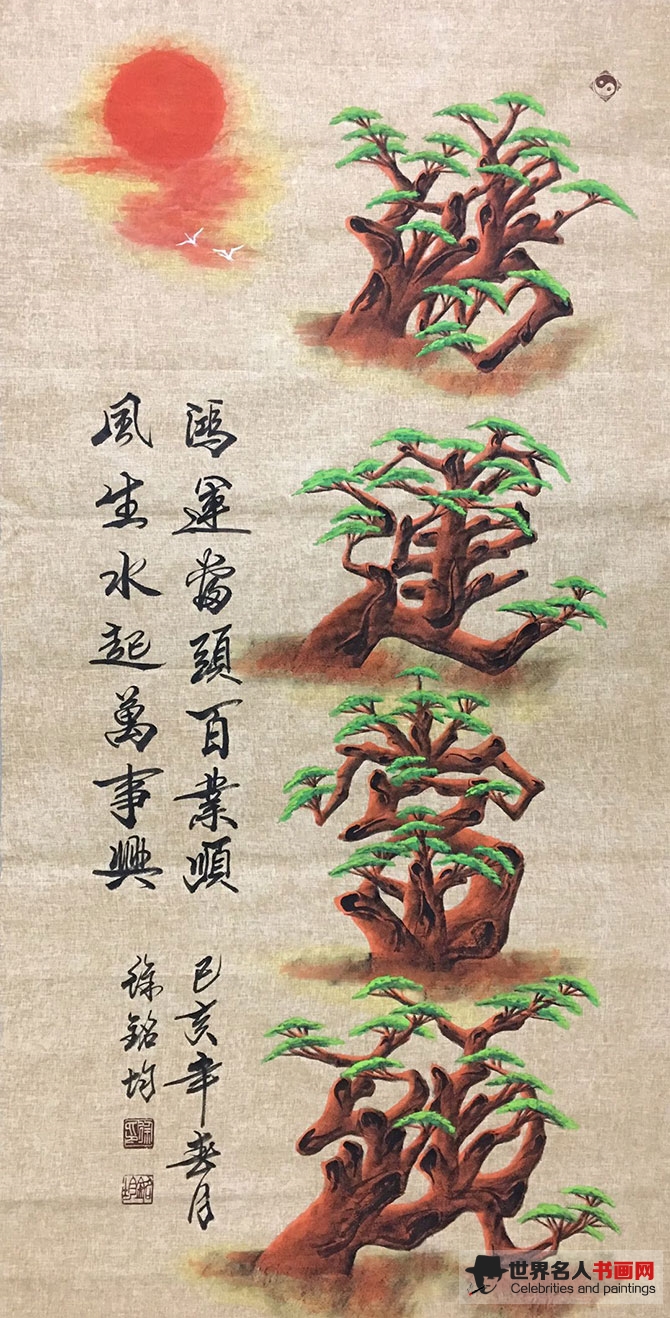 建
鴻運當頭百業順
風生水起萬事興
己亥年春月
徐銘均
世界名人书画网
Celebrities and paintings